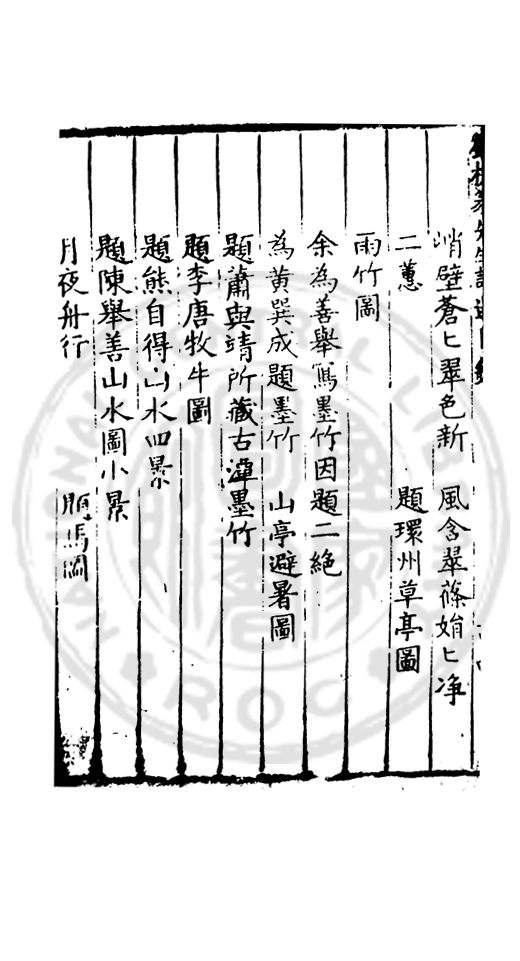 峭壁蒼〻翠色新　風含翠篠娟〻净
二蕙　題環州草亭圖
雨竹圖
余為善舉寫墨竹因題二絶
為黄巽成題墨竹　山亭避暑圖
題蕭與靖所藏古潭墨竹
題李唐牧牛圖
題熊自得山水四景
題陳舉善山水圖小景
月夜舟行　馬圖